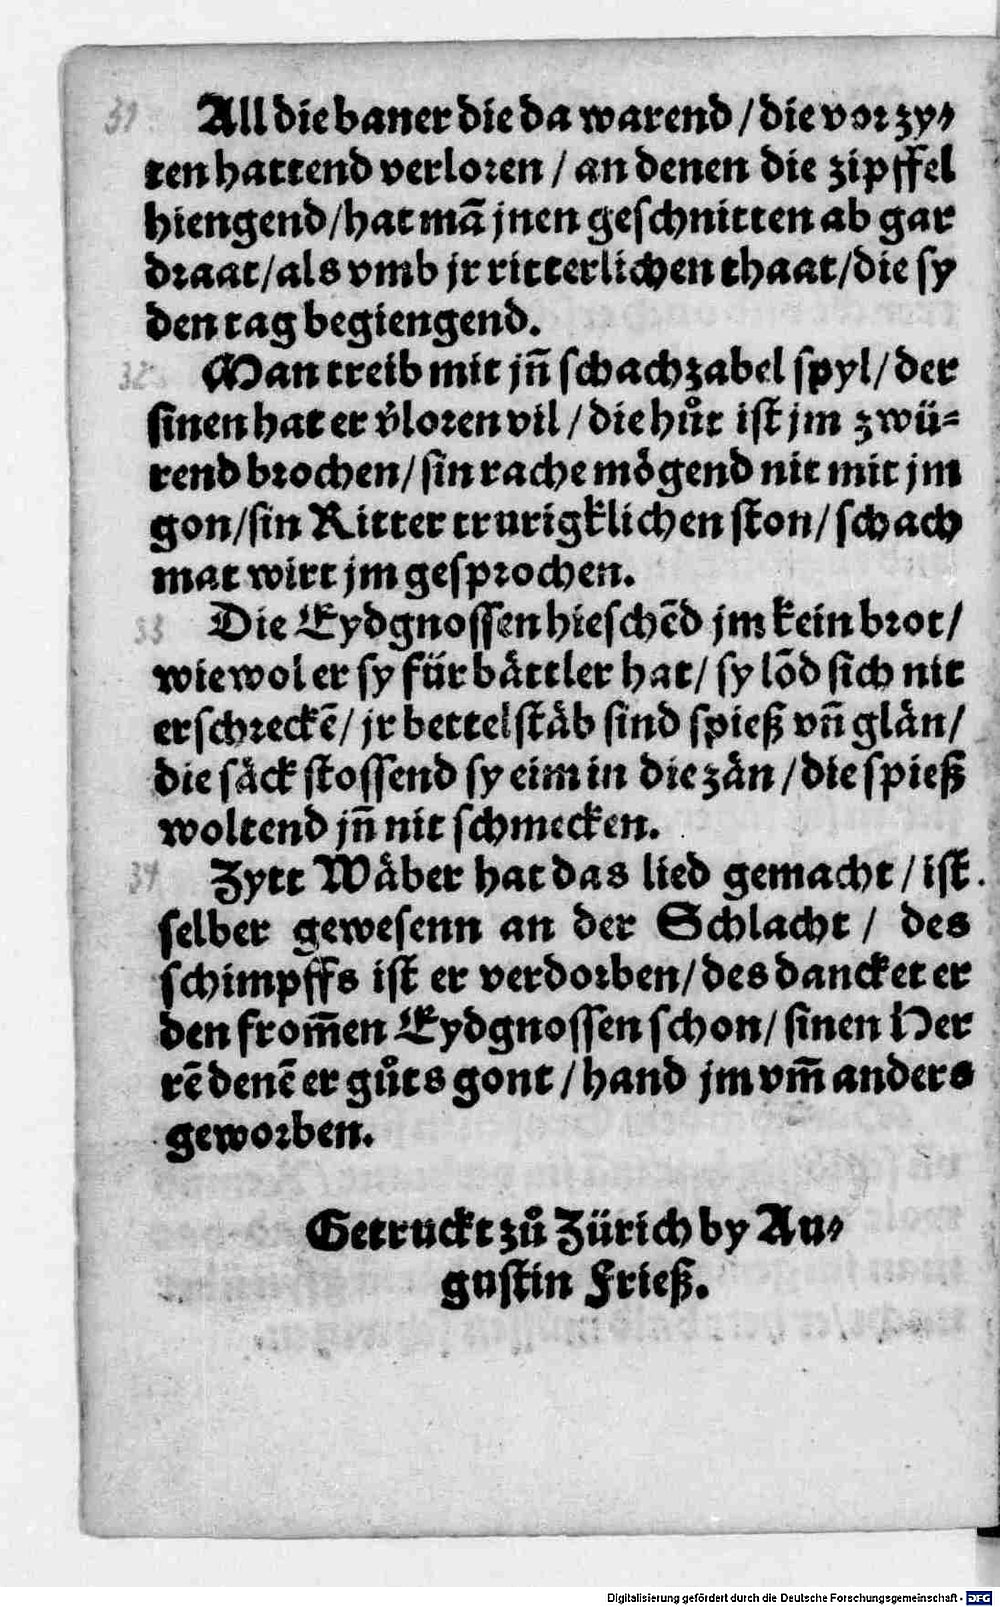 31 All die baner die da warend / die vor zy⸗
ten hattend verloren / an denen die zipffel
hiengend / hat mā jnen geschnitten ab gar
draat / als vmb jr ritterlichen thaat / die sy
den tag begiengend.
32 Man treib mit jñ schachzabel spyl / der
sinen hat er v̊loren vil / die hůt ist jm zwü⸗
rend brochen / sin rache mögend nit mit jm
gon / sin Ritter trurigklichen ston / schach
mat wirt jm gesprochen.
33 Die Eydgnossen hieschēd jm kein brot /
wiewol er sy für bättler hat / sy lōd sich nit
erschreckē / jr bettelstäb sind spieß vñ glän /
die säck stossend sy eim in die zän / die spieß
woltend jñ nit schmecken.
34 Zytt Wäber hat das lied gemacht / ist
selber gewesenn an der Schlacht / des
schimpffs ist er verdorben / des dancket er
den from̄en Eydgnossen schon / sinen Her
rē denē er gůts gont / hand jm vm̄ anders
geworben.
Getruckt zů Zürich by Au⸗
gustin Frieß.
Digitalisierung gefördert durch die Deutsche Forschungsgemeinschaft - DFG